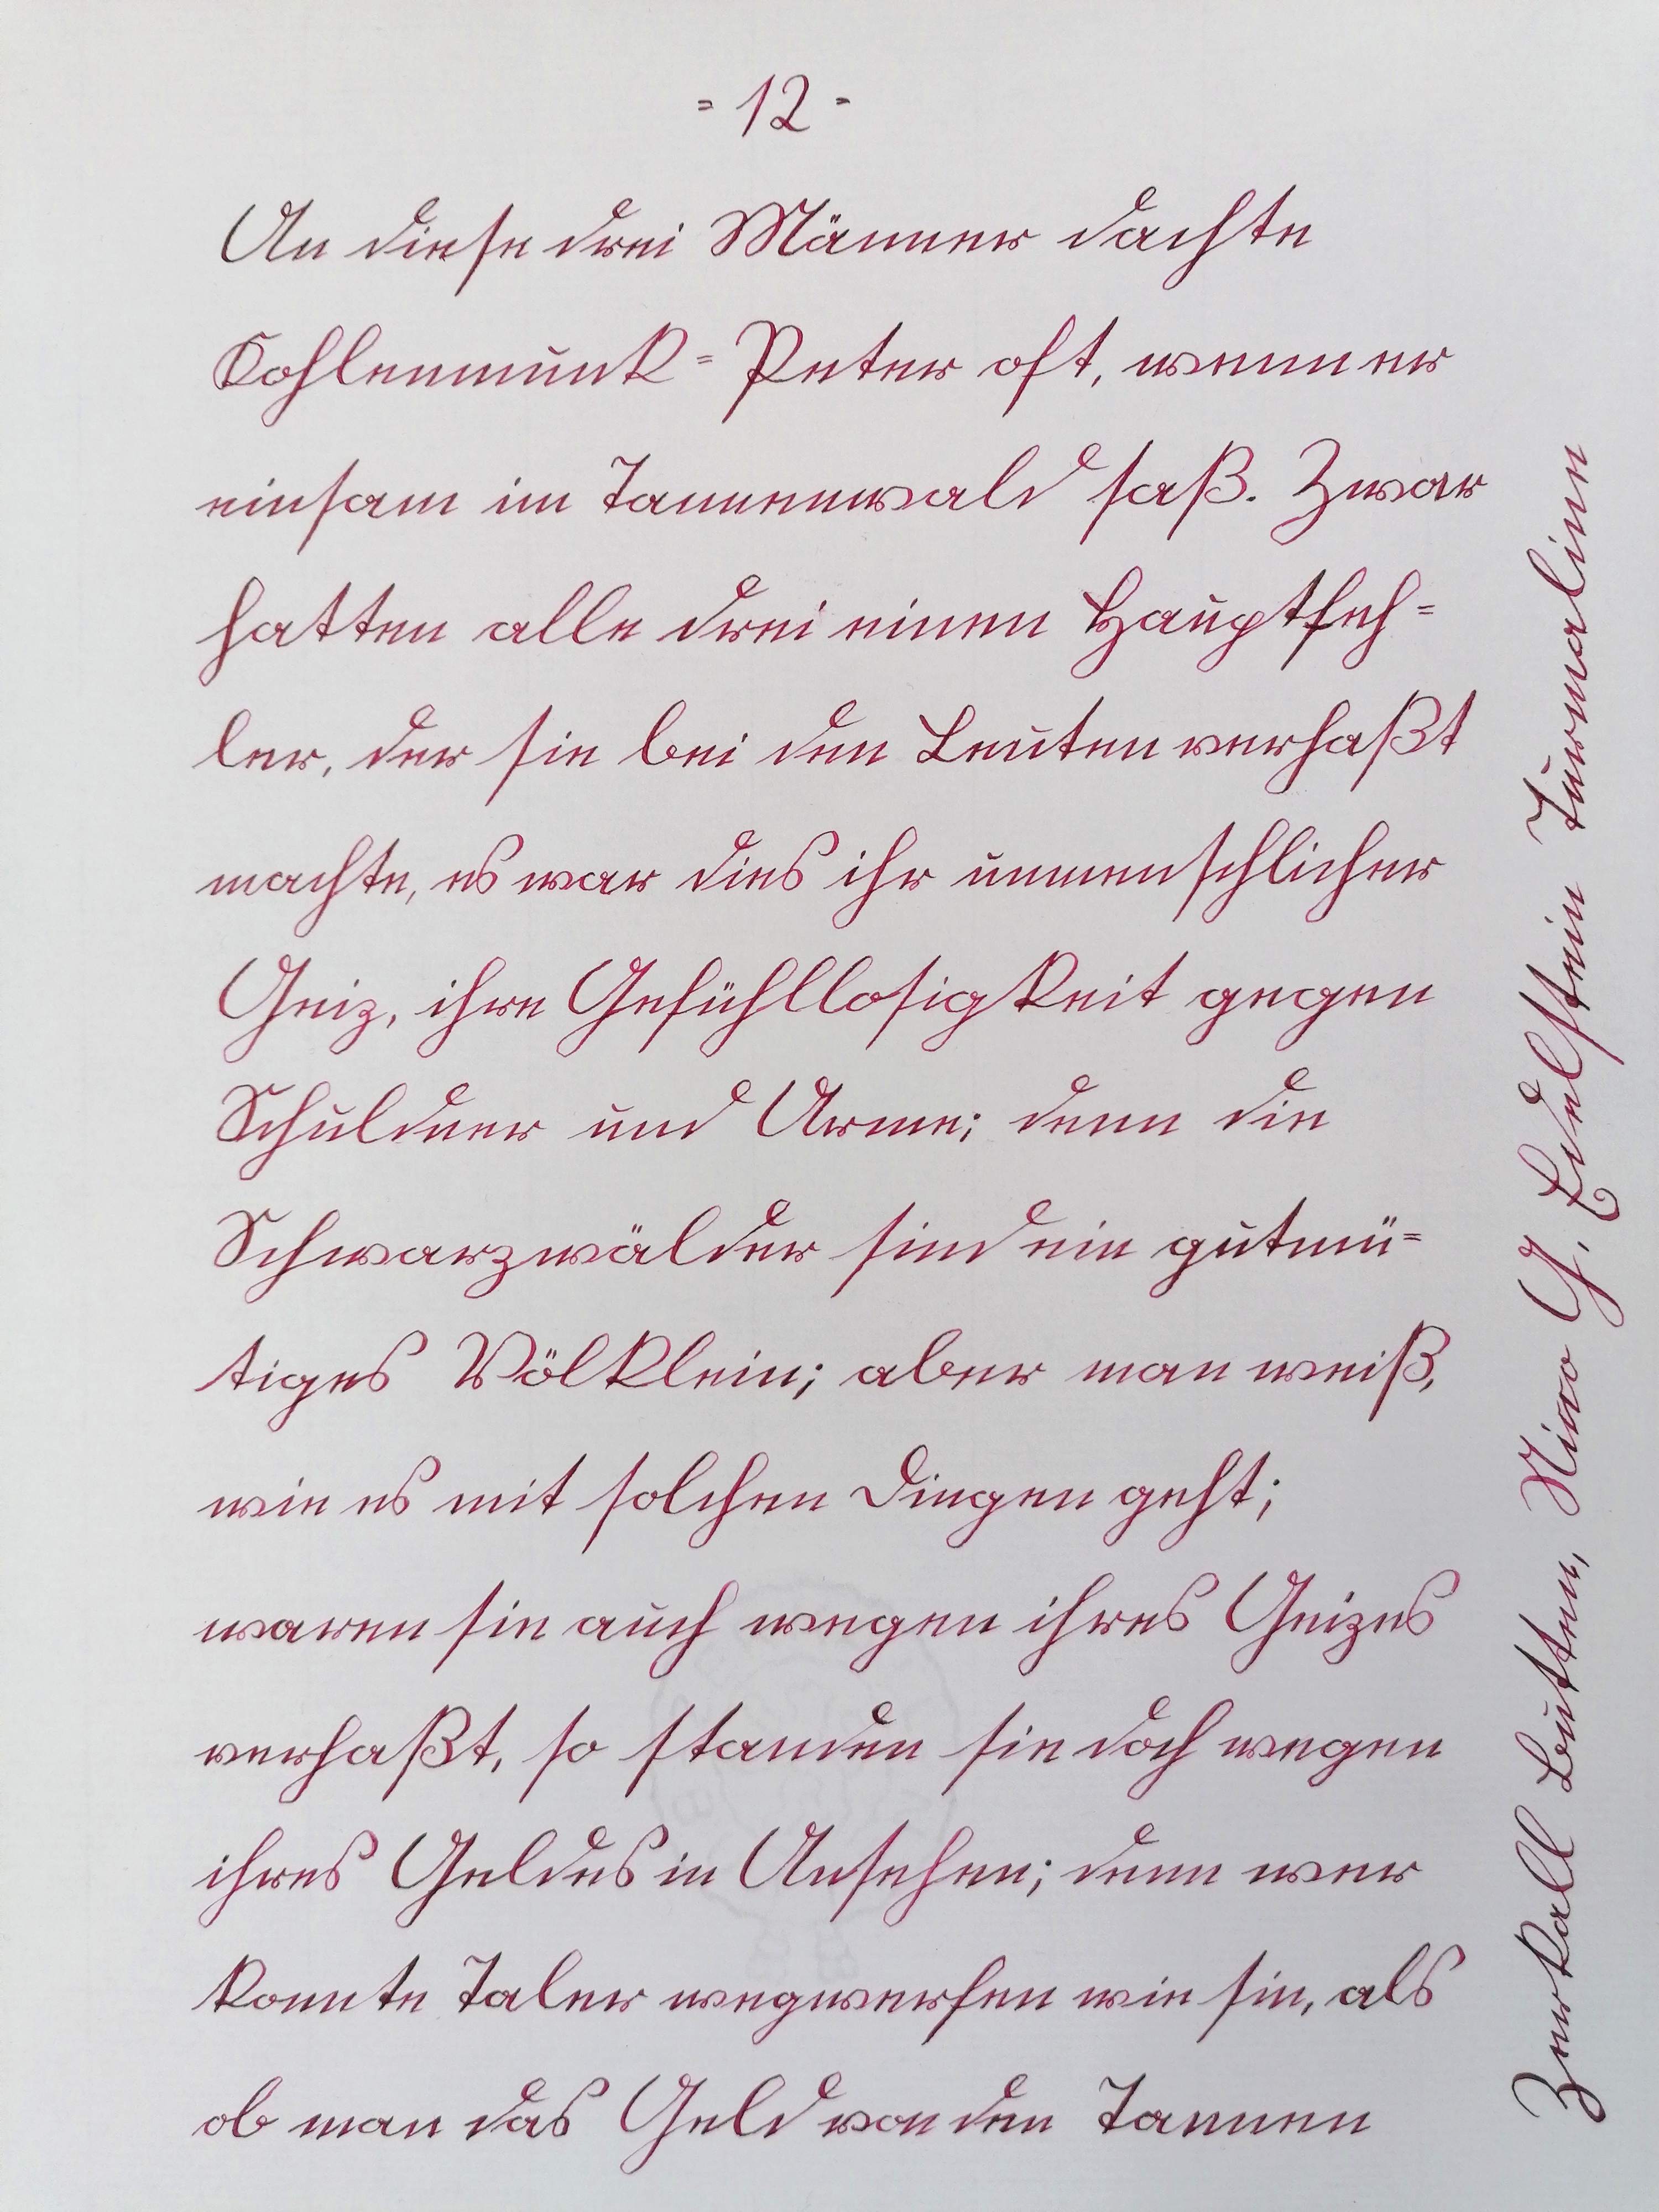 - 12 -
An diese drei Männer dachte
Kohlenmunk-Peter oft, wenn er
einsam im Tannenwald saß. Zwar
hatten alle drei einen Hauptfeh-
ler, der sie bei den Leuten verhaßt
machte, es war dies ihr unmenschlicher
Geiz, ihre Gefühllosigkeit gegen
Schuldner und Arme; denn die
Schwarzwälder sind ein gutmü-
tiges Völklein; aber man weiß,
wie es mit solchen Dingen geht;
waren sie auch wegen ihres Geizes
verhaßt, so standen sie doch wegen
ihres Geldes in Ansehen; denn wer
konnte Taler wegwerfen wie sie, als
ob man das Geld von den Tannen
Zerkall Bütten, Edelstein Turmaline